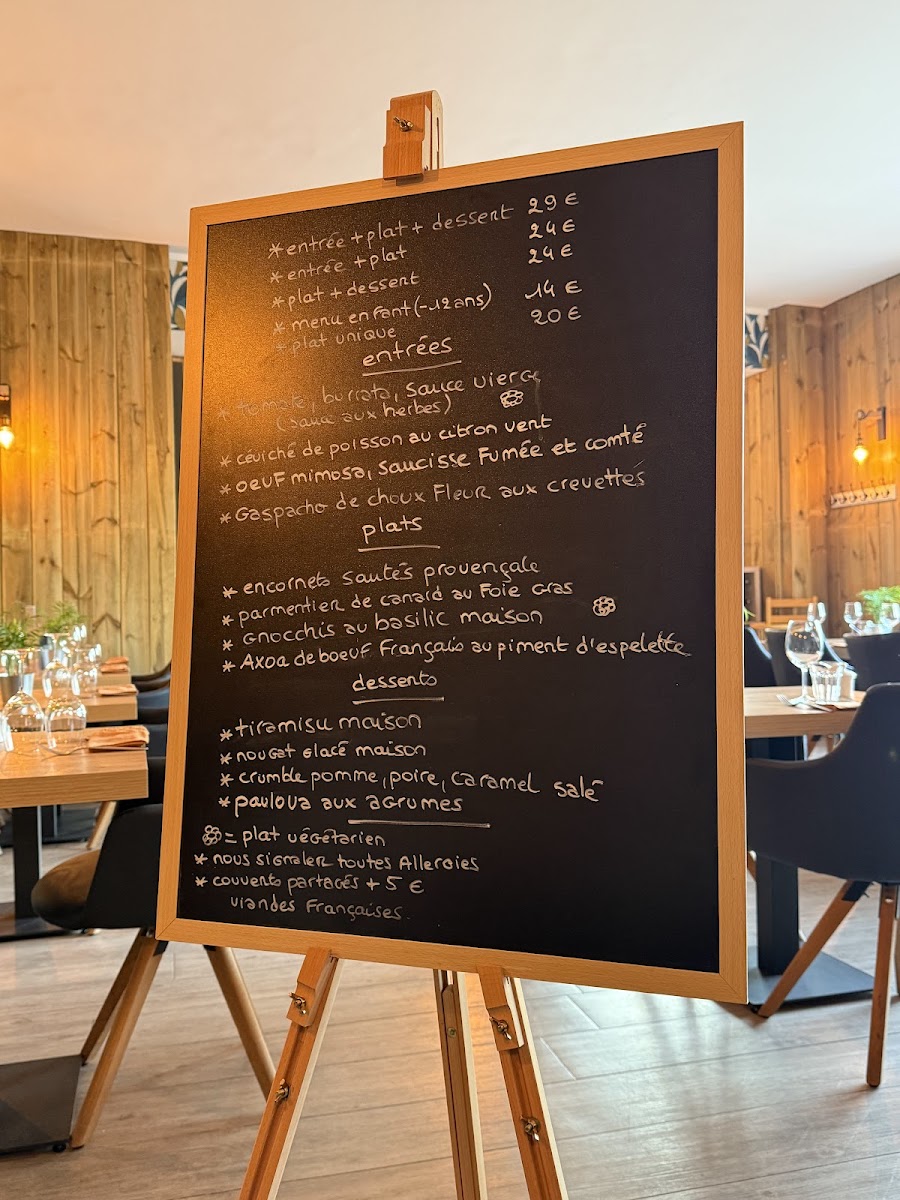 *entrée + plat + dessert 29 €
*entrée + plat 24 €
*plat + dessert 24 €
* menu enfant (-12ans) 14 €
*plat unique 20 €
entrées
* Tomate, burrata, sauce vierge
(sauce aux herbes)
* céviché de poisson au citron vert
* oeuf mimosa, saucisse fumée et comté
* Gaspacho de choux fleur aux crevettes
plats
* encornets sautés provençale
* parmentier de canard au foie gras
* Gnocchis au basilic maison
* Axoa de boeuf Français au piment d'espelette
desserts
*tiramisu maison
*nougat glacé maison
* crumble pomme, poire, caramel salé
*pavlova aux agrumes
= plat végétarien
* nous signaler toutes Allergies
* couverts partagés + 5 €
viandes Françaises.